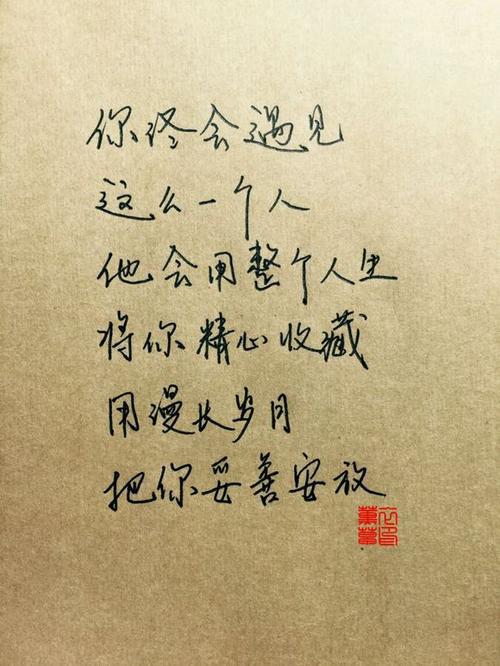 你终会遇见
这么一个人
他会用整个人生
将你精心收藏
用漫长岁月
把你妥善安放